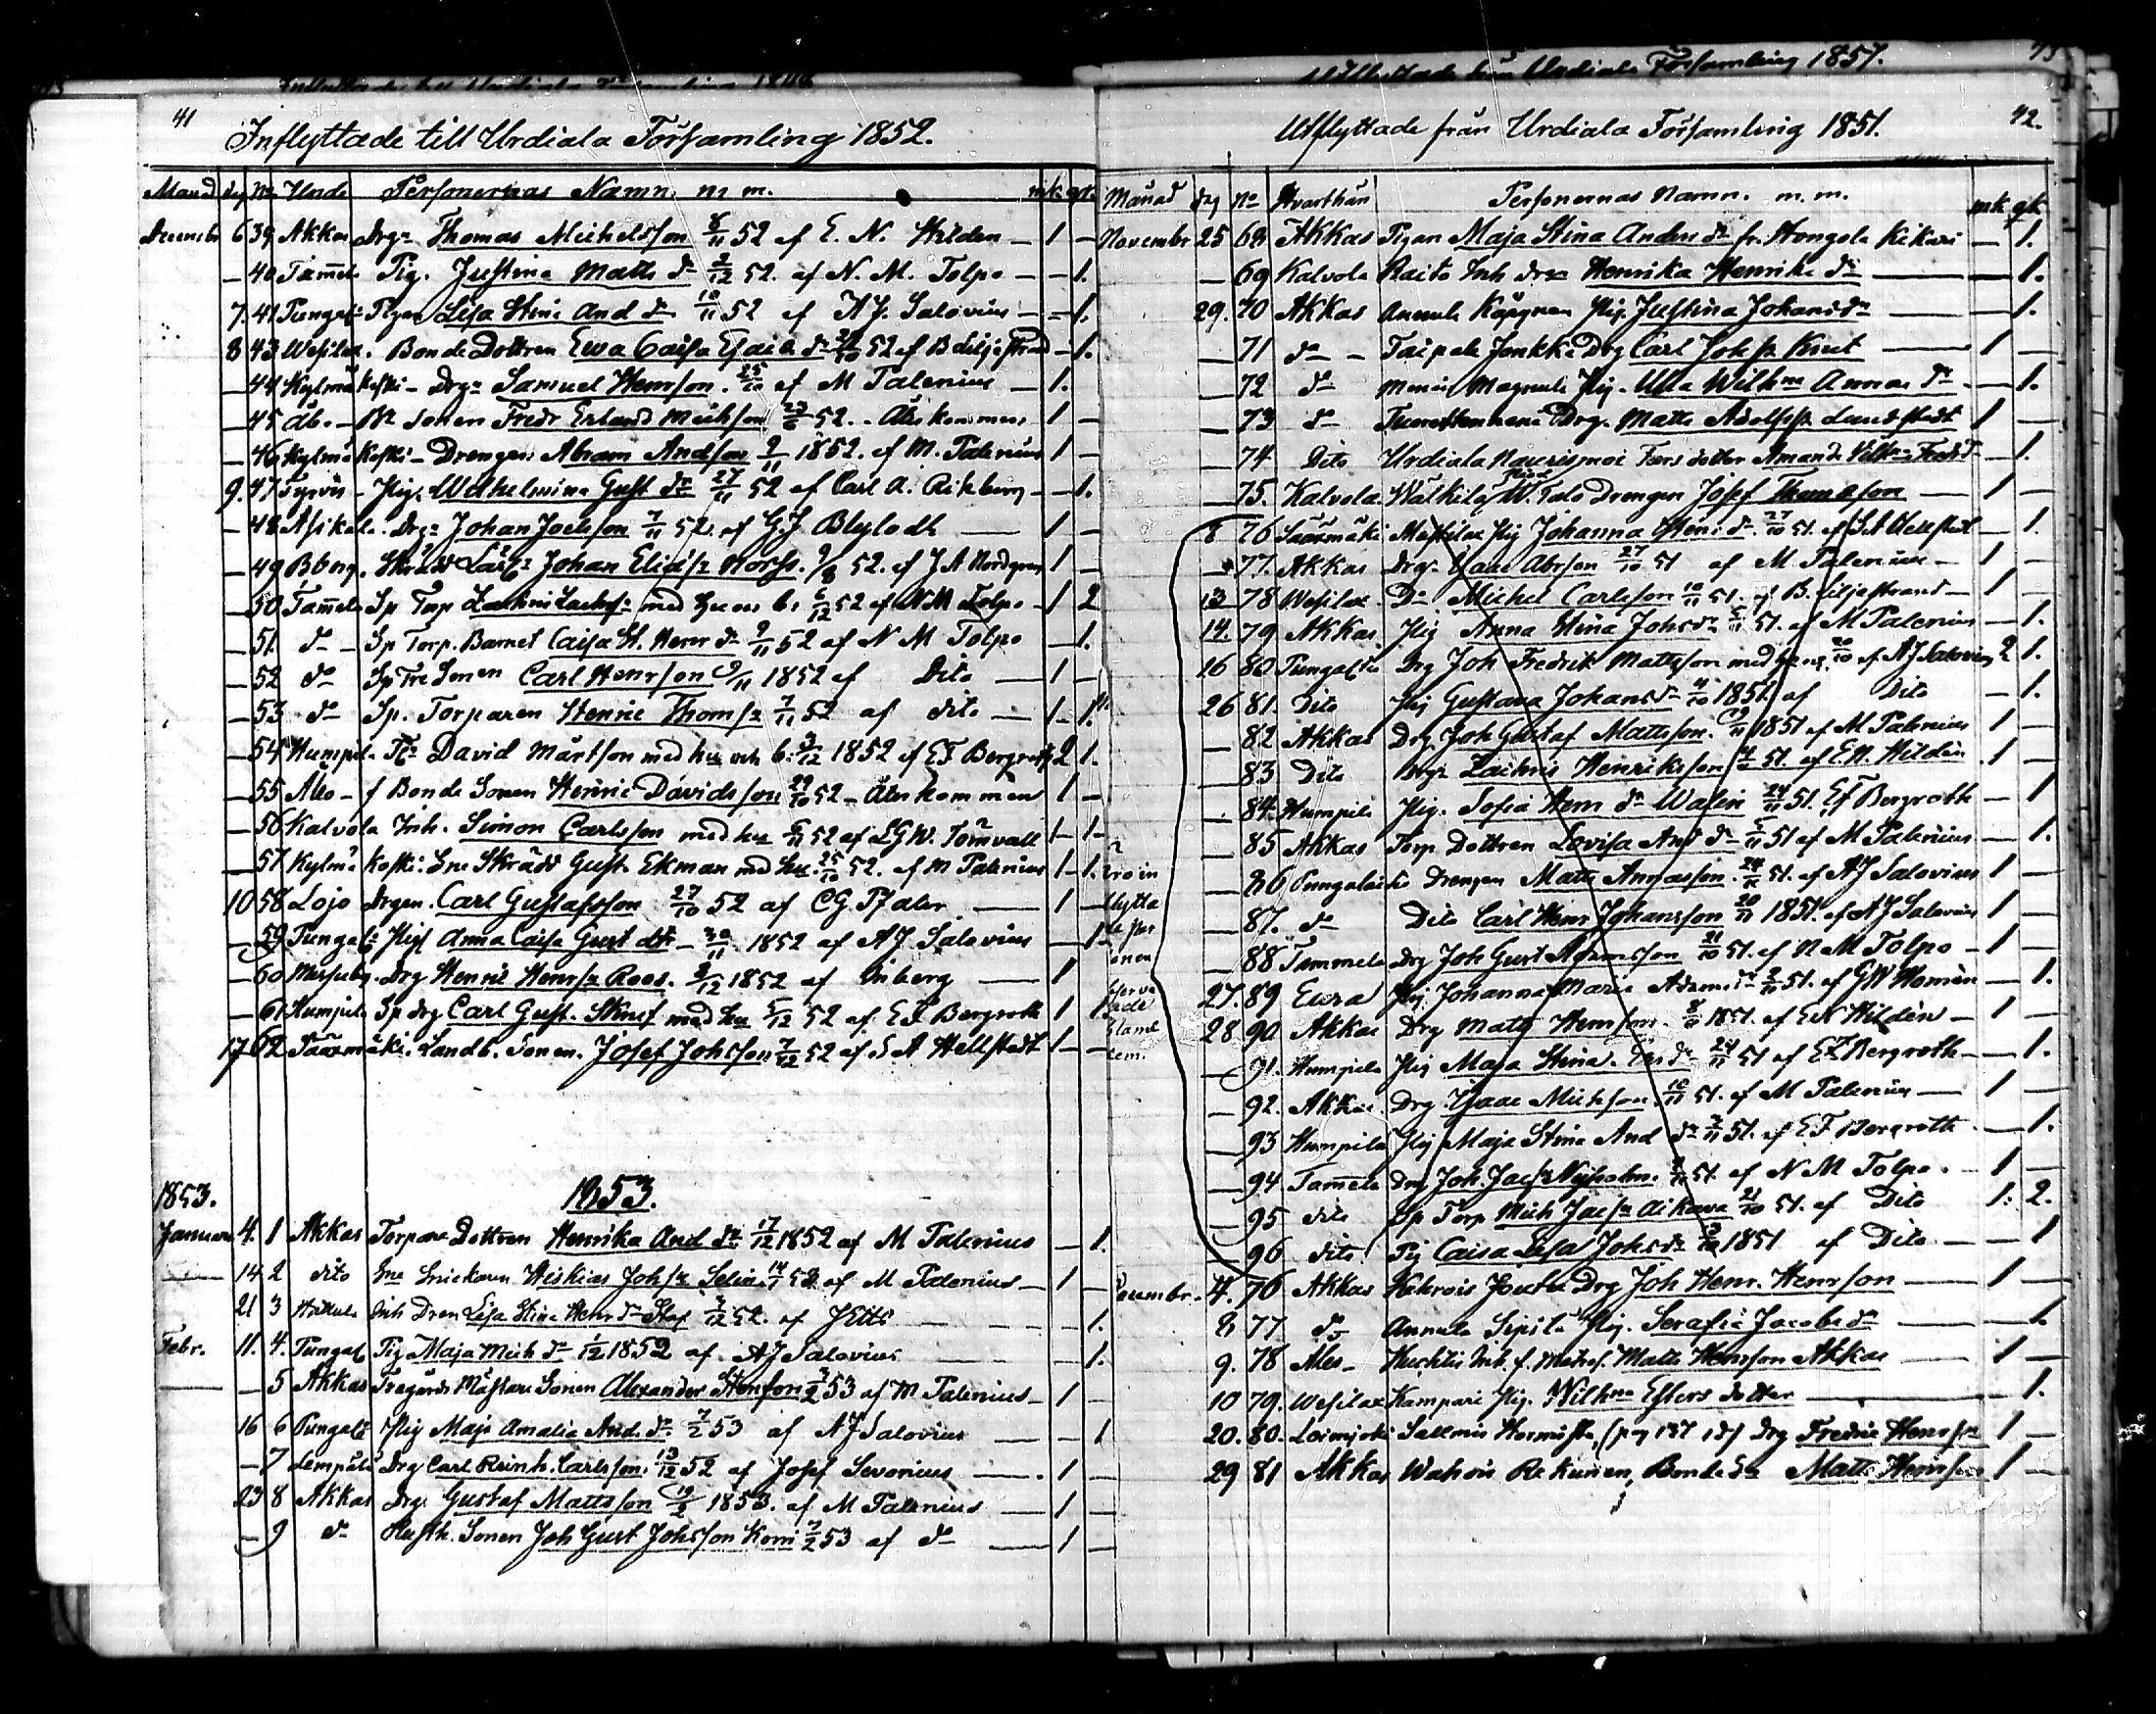 41
Inflyttade till Urdiala Församling 1852.
Månad dag No Unde Personernas Namn. m m. mk. qk.
December 6 39 Akkas Drgn Thomas Michelsson 8/11 52 af E. N. Hilden — 1 —
— 40 Tammela Pig. Justina Matts dr 2/12 52. af N. M. Tolpo — — 1.
7. 41 Pungal. Pigan Lisa Stina And dr 10/11 52 af A J. Salovius — — 1.
8 43 Wesilax. Bonde Dottren Ewa Caisa Esaia dr 52 af B Liljestrand — 1.
— 44 Kylmäkoski — Drgn Samuel Henrsson. 25/10 af M Palenius — 1.
— 45 Åbo. — Bn Sonen Fredr Erland Michsson 23/6 52. — Återkommen 1 —
— 46 Kylmäkoski — Drengen Abram Andsson 9/11 1852. af M. Palenius 1 —
9. 47 Tyrvis — Pig. Wilhelmina Gust dr 27/11 52 af Carl A. Rikberg — — 1.
— 48 Asikkala. Drgn Johan Joelsson 7/11 52. af G J Blylodh — 1 —
— 49 Bborg. Skrädd Lärl. Johan Eliasz Norss. 9/8 52. af J. A Nordgren 1 —
— 50 Tammela Sp Torp. med hu o b: 6/12 52 af N M Tolpo — 1 2
— 51 do — Sp Torp. Barnet Caisa St. Henr dr 9/11 52 af N M Tolpo — 1.
— 52 do Sp Tre Sonen Carl Henrsson 9/11 1852 af Dito — 1 —
— 53 do — Sp. Torparen Henric Thomsz 7/11 52 af dito — 1 — 1.
— 54 Humpila Tr David Mårtsson med hu och b: 3/12 1852 af E F Bergroth 2 1.
— 55 Åbo — f Bonde Sonen Henric Davidsson 29/10 52 — Återkommen 1 —
— 56 Kalvola Inh. Simon Carlsson med hu 6/11 52 af L G W. Törnvall 1 — 1 —
— 57 Kylmäkoski: Sne Skrädd Gust. Ekman med hu. 25/10 52. af M Palenius 1 — 1.
10 58 Lojo Drgen. Carl Gustafsson 27/10 52 af C G Pfaler — 1 —
— 59 Pungal. Pig Anna Caisa Gust dtr — 30/11 1852 af A J. Salovius — 1 —
— 60 Drg Henric Henrsz Roos. 3/12 1852 af Enberg — 1
— 61 Humpila Sp drg Carl Gust. Skruf med hu 5/12 52 af E F Bergroth 1 1
17 62 Säärmäki. Landb. Sonen. Josef Johsson 7/12 52 af S A Hellstedt 1 —
1853.
1853.
Januari 4. 1 Akkas Torpare Dottren Henrika And dr 17/12 1852 af M Palenius — 1.
14 2 dito Sne Snickaren Hiskias Johsz Selin 14/1 53 af M Palenius — 1 —
21 3 Inh Dren Lisa Stina Henr dr 3/12 52. af — 1.
Febr. 11. 4. Pungal. Pig Maja Mich dr 1/12 1852 af A J Salovius — 1.
— 5 Akkas Trägårds Mästare Sonen Alexander Stenfors 3/2 53 af M Palenius — 1 —
16 6 Pungal. Pig Maja Amalia And. dr 7/2 53 af A J Salovius — 1
— 7 Lempälä Drg Carl Reinh. Carlsson 13/12 52 af Josef Sevonius — 1 —
23 8 Akkas Drg. Gustaf Mattsson 19/2 1853. af M Palenius — 1 —
— 9 do Husth. Sonen Joh Gust Johsson Korri 7/2 53 af do — 1 —
Utflyttade från Urdiala Församling 1857. 73
Utflyttade från Urdiala Församling 1851. 42.
Månad dag No Hvarthän Personernas Namn. m. m. mk qk
November 25 68 Akkas Pigan Maja Stina Anders dr fr. Hongola Kikuri — 1.
— 69 Kalvola Raito Inh drn Henrika Henriks dr — 1.
29. 70 Akkas Annula Pig. Justina Johans dr — 1.
— 71 do — Taipale Jonkki Drg Carl Johsz Knut — 1 —
— 72 do Pig. Ulla Wilhna Annas dr — 1.
— 73 do Drg. Matts Adolfsz Lundstedt 1 —
— 74 Dito Urdiala dotter Amanda — 1.
— 75. Kalvola Wälkilä W. Talo Drengen Josef Thomasson — 1 —
8 76 Säärmäki Pig Johanna Henr dr. 27/10 51. af S. A Hellstedt — 1.
— 77. Akkas Drgn Isaac Abrson 27/10 51 af M Palenius — 1 —
13 78 Wesilax. Dn Michel Carlsson 10/11 51. af B. Liljestrand — 1 —
14. 79 Akkas Pig Anna Stina Johs dr 5/11 51. af M Palenius — 1.
16 80 Pungaltio Drg Joh Fredrik Mattsson med hu 20/10 af A J Salovius 2 1.
26 81. Dito Pig Gustava Johans dr 1851. af Dito — 1.
— 82 Akkas Drg Joh Gustaf Mattsson. 1851 af M Palenius 1 —
— 83 Dito Drgn Zachris Henriksson 51. af E. N. Hilden 1
— 84. Humpila Pig. Sofia Henr dr Walin 24/11 51. E F Bergroth — 1
— 85 Akkas Torp Dottren Lovisa And dr 5/11 51 af M Palenius — 1.
— 86 Pungalaitio Drengen Matts Annasson. 51. af A J Salovius 1 —
— 87. do Dito Carl Henr Johansson 20/11 1851. af A J Salovius 1 —
— 88 Tammela Drg Joh Gust Adamsson 21/10 51. af N M Tolpo — 1 —
27. 89 Eura Pig Johanna Maria Adams dr 51. af G W Homén — 1.
28 90 Akkas Drg Matts Henrsson. 8/11 1851. af E N Hilden — 1 —
— 91. Humpila Pig Maja Stina 24/11 51 af E F Bergroth — 1.
— 92. Akkas Drg Isaac Michsson. 10/11 51. af M Palenius — 1 —
— 93 Humpila Pig Maja Stina And dr 51. af E F Bergroth — 1.
— 94 Tamela Drg Joh. Jacsz Nyholm. 51. af N M Tolpo. — 1 —
— 95 dito Sp Torp Mich Jacsz Aikava 21/10 51. af Dito 1: 2.
— 96 dito Pig Caisa Lisa Johs dr 1851 af Dito — 1
December 4. 76 Akkas Jouta Drg Joh Henr. Henrsson — 1 —
8 77 do Annula Sipilä Pig. Serafia Jacobs dr — 1.
9. 78 Åbo — Huchtis Inh. f. Matts Henrsson Akkas — 1 —
10 79. Wesilax Kampari Pig. Wilhna Esters dotter — 1.
20. 80. Loimjoki Sallmis (pag 137) Drg Fredric Henrsz 1 —
29 81 Akkas Wahois Rekunen, Bonde Sn Matts Henrsson 1 —